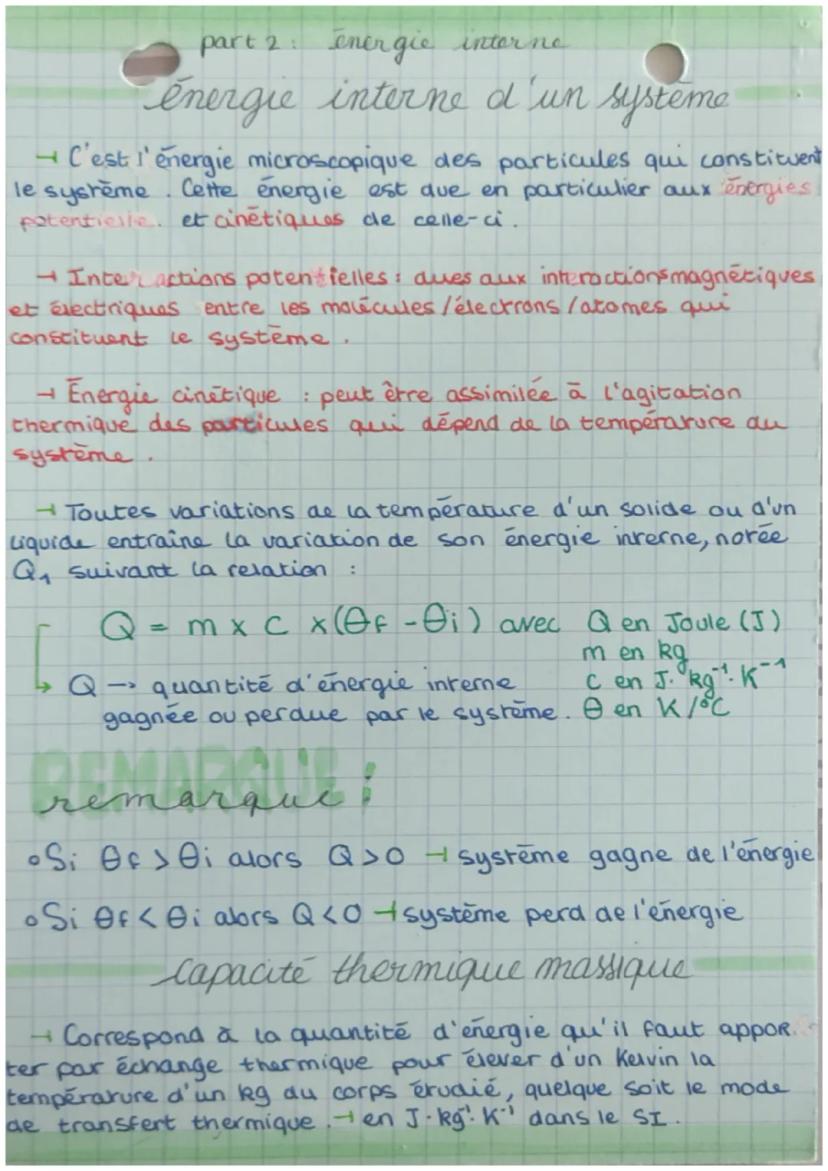 part 2 : énergie interne
énergie interne d'un système
→ C'est l'énergie microscopique des particules qui constituent
le système. Cette énergie est due en particulier aux énergies
potentielle. et cinétiques de celle-ci.
→ Interactions potentielles : dues aux interactions magnétiques
et électriques entre les molécules / électrons / atomes qui
constituent le système.
→ Énergie cinétique : peut être assimilée à l'agitation
thermique des particules qui dépend de la température du
système.
→ Toutes variations de la température d'un solide ou d'un
liquide entraîne la variation de son énergie interne, notée
Q, suivant la relation :
Q = m x c x (θf - θi) avec Q en Joule (J)
m en kg
c en J. kg⁻¹. K⁻¹
θ en K/°C
↳ Q → quantité d'énergie interne
gagnée ou perdue par le système.
REMARQUE :
remarque :
• Si θf > θi alors Q > 0 → système gagne de l'énergie
• Si θf < θi alors Q < 0 → système perd de l'énergie
capacité thermique massique
→ Correspond à la quantité d'énergie qu'il faut appor-
ter par échange thermique pour élever d'un Kelvin la
température d'un kg du corps étudié, quelque soit le mode
de transfert thermique. → en J. kg⁻¹. K⁻¹ dans le SI.